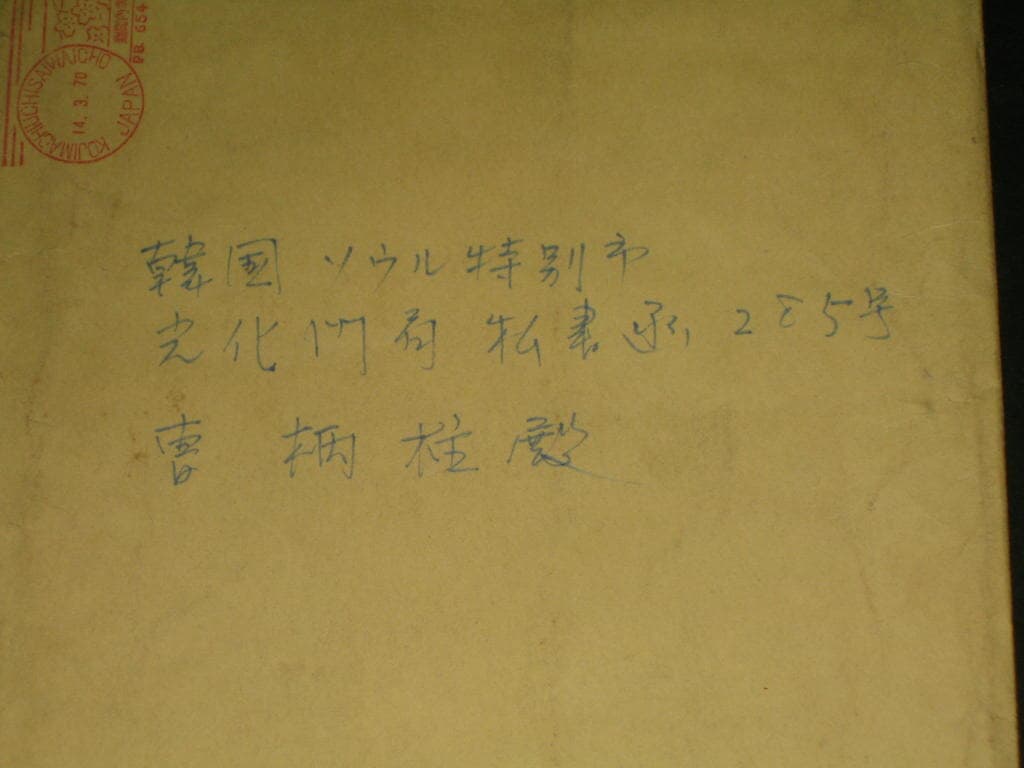 PB. 654
KOJIMACHIUCHISAIWAICHO JAPAN
14.3.70
韓国 ソウル特別市
光化門局 私書函 285号
曺 柄柱殿